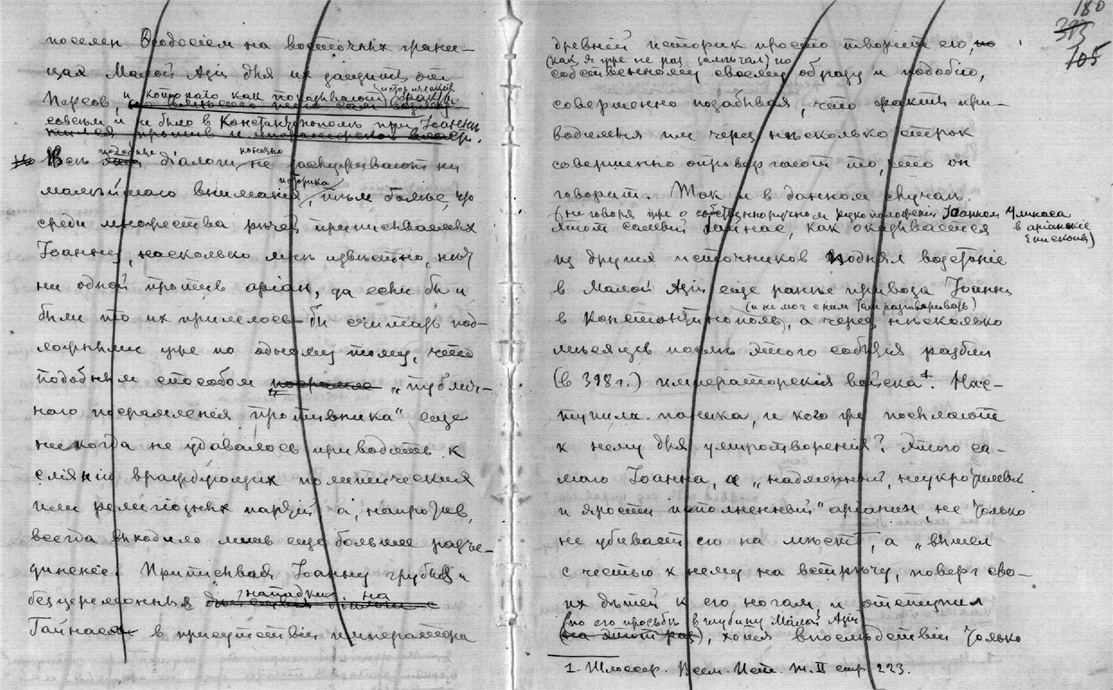 поселен Ѳеодосіем на восточных грани-
цах Малой Азіи для их защиты от
Персов, и которого как показывают историческія
совсѣм и не было в Константинополѣ при Іоаннѣ
Всѣ подобные діалоги, конечно не заслуживают ни
малѣйшаго вниманія историка, тѣм болѣе, что
среди множества рѣчей приписываемых
Іоанну, насколько мнѣ извѣстно, нѣт
ни одной против аріан, да если бы и
были то их пришлось-бы считать под-
ложными уже по одному тому, что
подобным способом „публич-
наго посрамленія противника“ еще
никогда не удавалось приводить к
сліянію враждующих политических
или религіозных партій а, напротив,
всегда выходило лишь еще большее разъе-
диненіе. Приписывая Іоанну грубыя и
безцеремонныя нападки на
Гайнаса в присутствіи императора
180
105
древній историк просто творит его
(как я уже не раз замѣчал) по
собственному своему образу и подобію,
совершенно позабывая, что факты при-
водимые им через нѣсколько строк
совершенно опровергают то, что он
говорит. Так и в данном случаѣ.
(не говоря уже о собственноручном рукоположеніи Іоанном Уннаса
в аріанскіе епископы)
Этот самый Гайнас, как оказывается
из других источников поднял возстаніе
в Малой Азіи еще ранѣе привоза Іоанна
(и не мог с ним там разговаривать)
в Константинополь, а через нѣсколько
мѣсяцев послѣ этого событія разбил
(в 398 г.) императорскія войска¹. Нас-
тупила паника, и кого же посылают
к нему для умиротворенія? Этого са-
маго Іоанна, а „надменный, неукротимый
и ярости исполненный“ аріанин, не только
не убивает его на мѣстѣ, а „вышел
с честью к нему на встрѣчу, поверг сво-
их дѣтей к его ногам, и отступил
(по его просьбѣ в глубину Малой Азіи
), хотя впослѣдствіи только
1. Шлоссер. Всем. Ист. т. II стр 223.